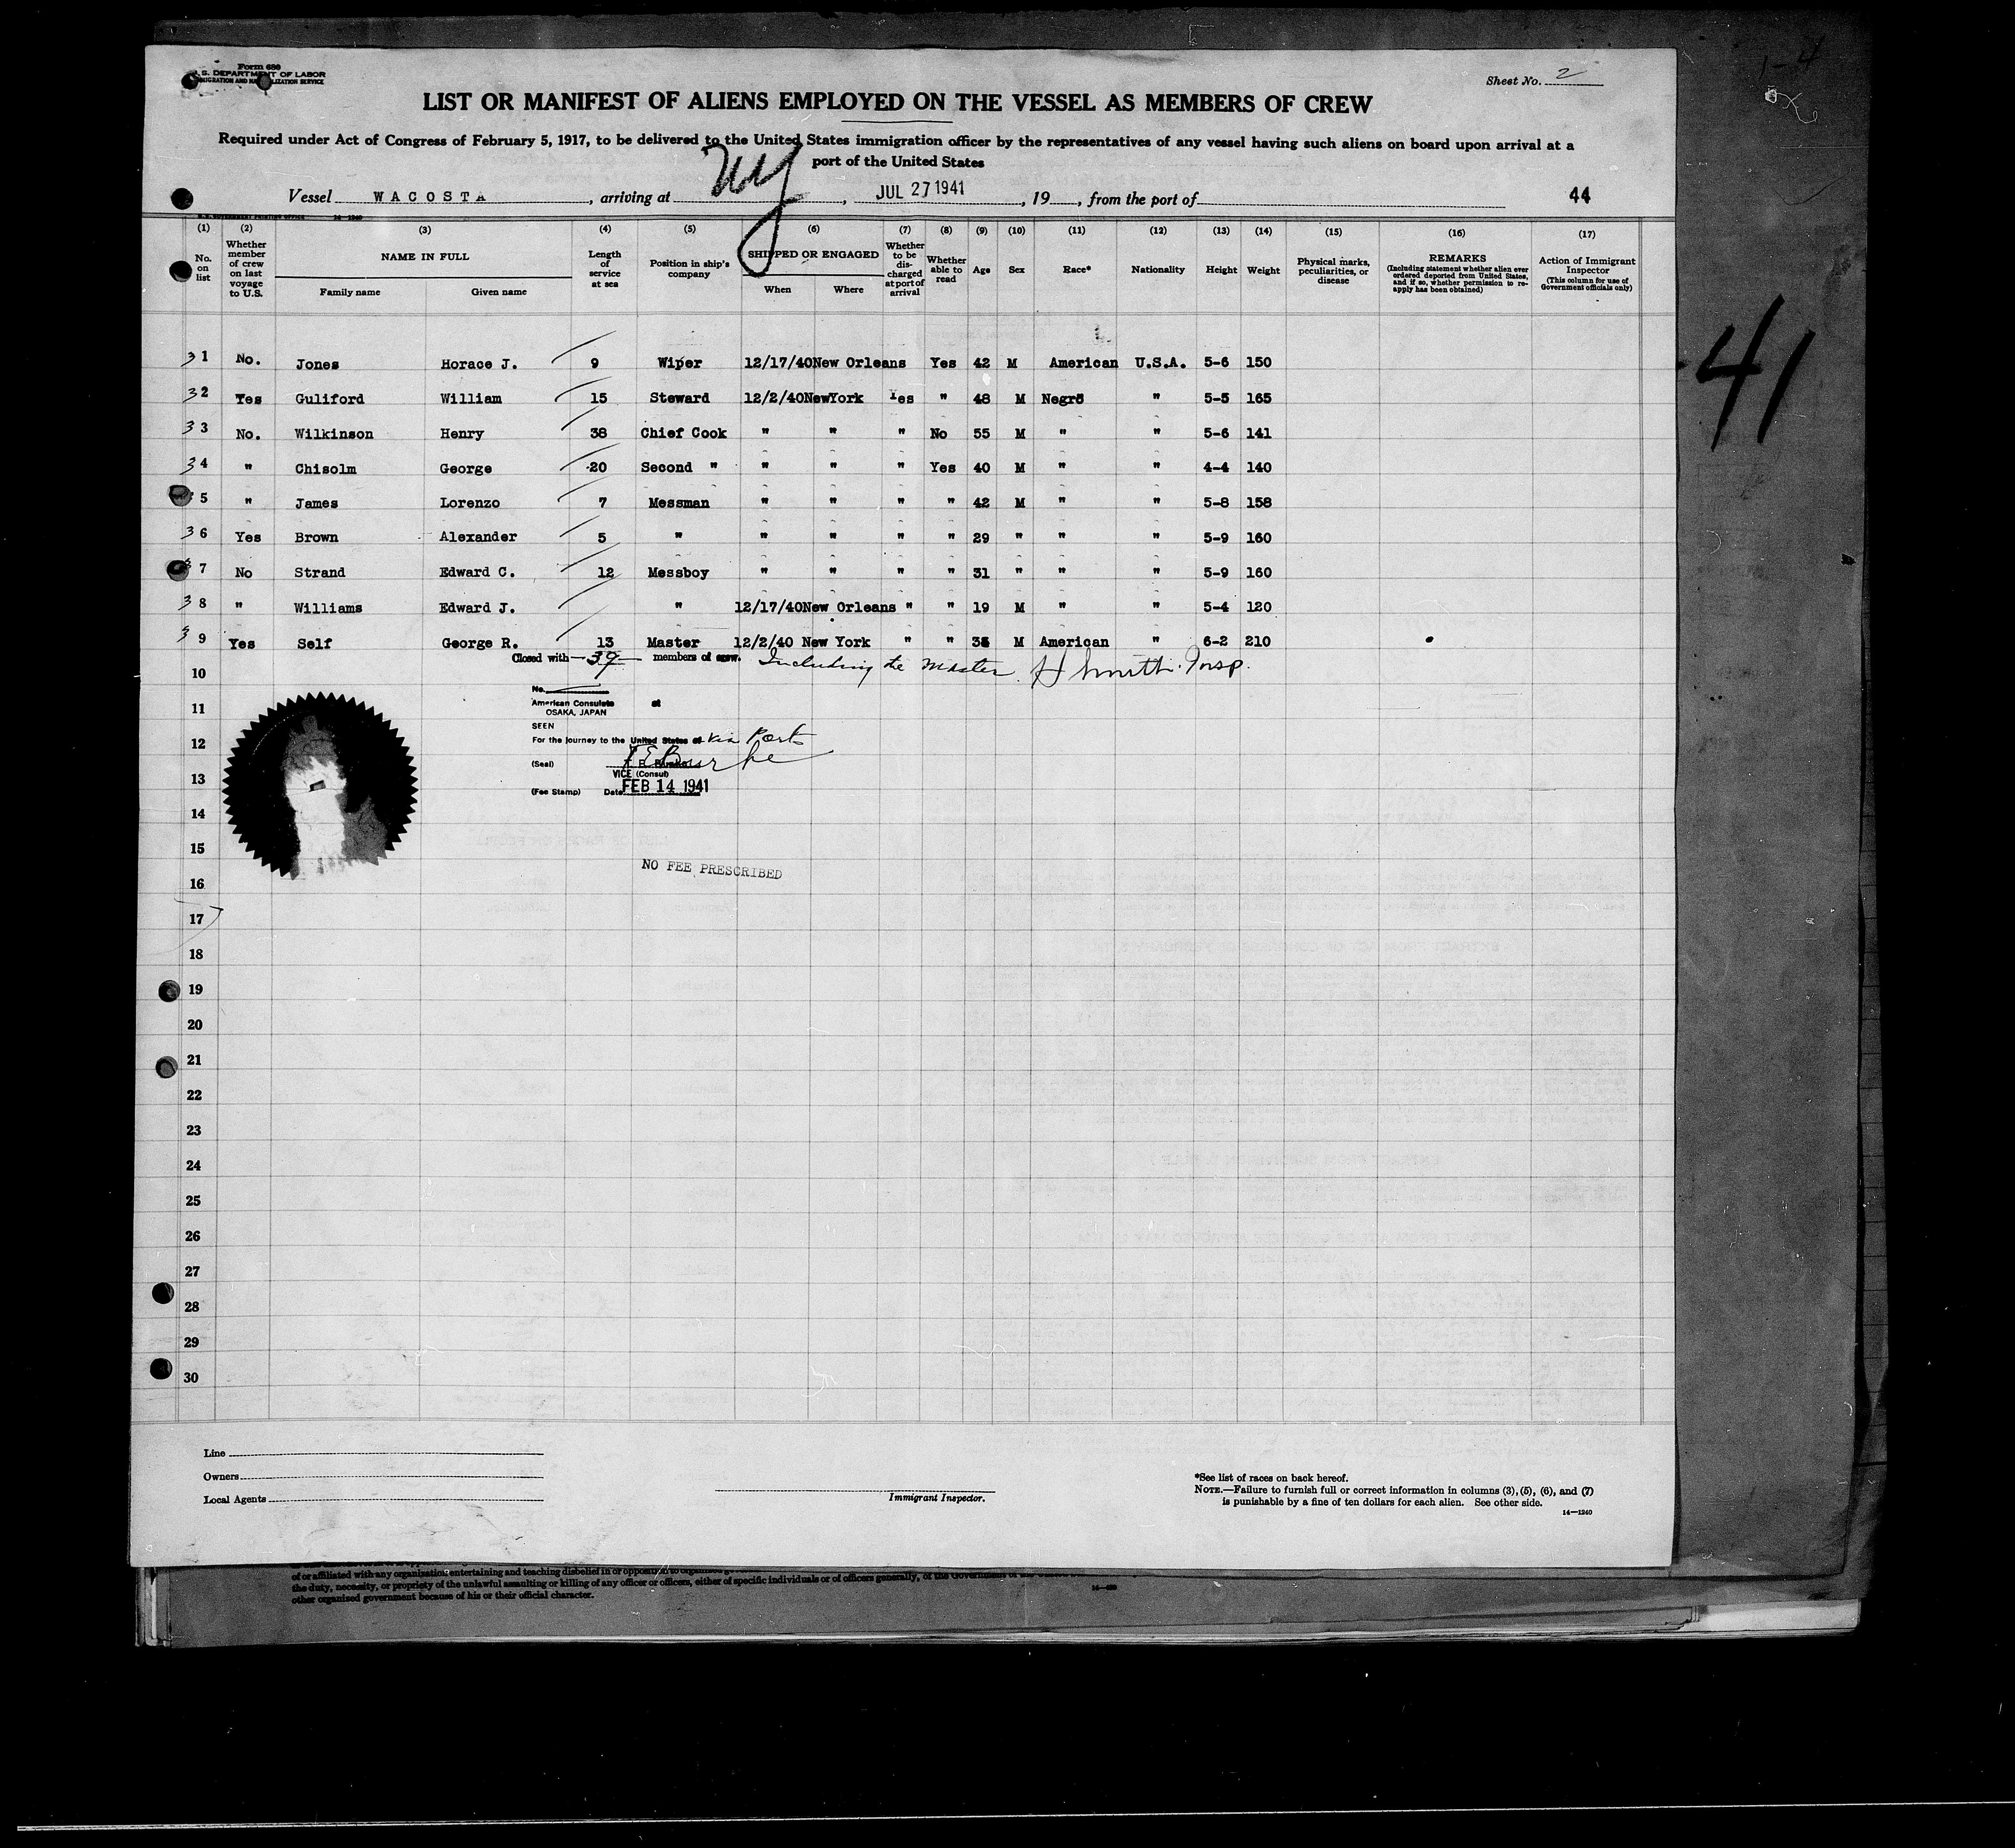 Form 680
U.S. DEPARTMENT OF LABOR
IMMIGRATION AND NATURALIZATION SERVICE
Sheet No. 2
1-4
LIST OR MANIFEST OF ALIENS EMPLOYED ON THE VESSEL AS MEMBERS OF CREW
Required under Act of Congress of February 5, 1917, to be delivered to the United States immigration officer by the representatives of any vessel having such aliens on board upon arrival at a
port of the United States
Vessel WACOSTA, arriving at NY, JUL 27 1941, 19, from the port of 44
U.S. GOVERNMENT PRINTING OFFICE 14-1240
(1) (2) (3) (4) (5) (6) (7) (8) (9) (10) (11) (12) (13) (14) (15) (16) (17)
No. on list
Whether member of crew on last voyage to U.S.
NAME IN FULL
Family name Given name
Length of service at sea
Position in ship's company
SHIPPED OR ENGAGED
When Where
Whether to be discharged at port of arrival
Whether able to read
Age
Sex
Race*
Nationality
Height
Weight
Physical marks, peculiarities, or disease
REMARKS
(Including statement whether alien ever ordered deported from United States, and if so, whether permission to reapply has been obtained)
Action of Immigrant Inspector
(This column for use of Government officials only)
41
31 No. Jones Horace J. 9 Wiper 12/17/40 New Orleans Yes 42 M American U.S.A. 5-6 150
32 Yes Guliford William 15 Steward 12/2/40 NewYork Yes " 48 M Negro " 5-5 165
33 No. Wilkinson Henry 38 Chief Cook " " " No 55 M " " 5-6 141
34 " Chisolm George 20 Second " " " " Yes 40 M " " 4-4 140
5 " James Lorenzo 7 Messman " " " " 42 M " " 5-8 158
36 Yes Brown Alexander 5 " " " " " 29 " " " 5-9 160
37 No Strand Edward C. 12 Messboy " " " " 31 " " " 5-9 160
38 " Williams Edward J. " 12/17/40 New Orleans " " 19 M " " 5-4 120
39 Yes Self George R. 13 Master 12/2/40 New York " " M American " 6-2 210
Closed with 39 members of crew. Including the Master. H Smith. Insp.
10
No.
11
American Consulate at
OSAKA, JAPAN
SEEN
12
For the journey to the United States of via Ports
(Seal) F E Bourke
VICE (Consul)
13
(Fee Stamp) Date FEB 14 1941
14
15
NO FEE PRESCRIBED
16
17
18
19
20
21
22
23
24
25
26
27
28
29
30
Line
Owners
Local Agents
Immigrant Inspector.
*See list of races on back hereof.
NOTE.—Failure to furnish full or correct information in columns (3), (5), (6), and (7)
is punishable by a fine of ten dollars for each alien. See other side.
14-1240
of or affiliated with any organization entertaining and teaching disbelief in or opposition to organized
the duty, necessity, or propriety of the unlawful assaulting or killing of any officer or officers, either of specific individuals or of officers generally, of the Government of the United
other organized government because of his or their official character.